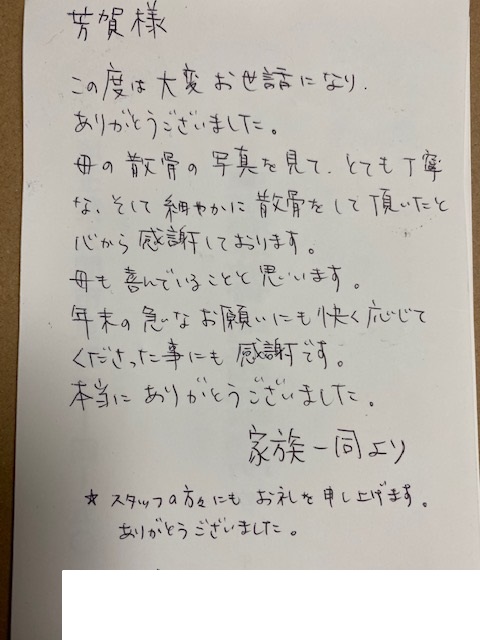 芳賀様
この度は大変お世話になり、
ありがとうございました。
母の散骨の写真を見て、とても丁寧
な、そして細やかに散骨をして頂いたと
心から感謝しております。
母も喜んでいることと思います。
年末の急なお願いにも快く応じて
くださった事にも感謝です。
本当にありがとうございました。
家族一同より
☆スタッフの方々にもお礼を申し上げます。
ありがとうございました。